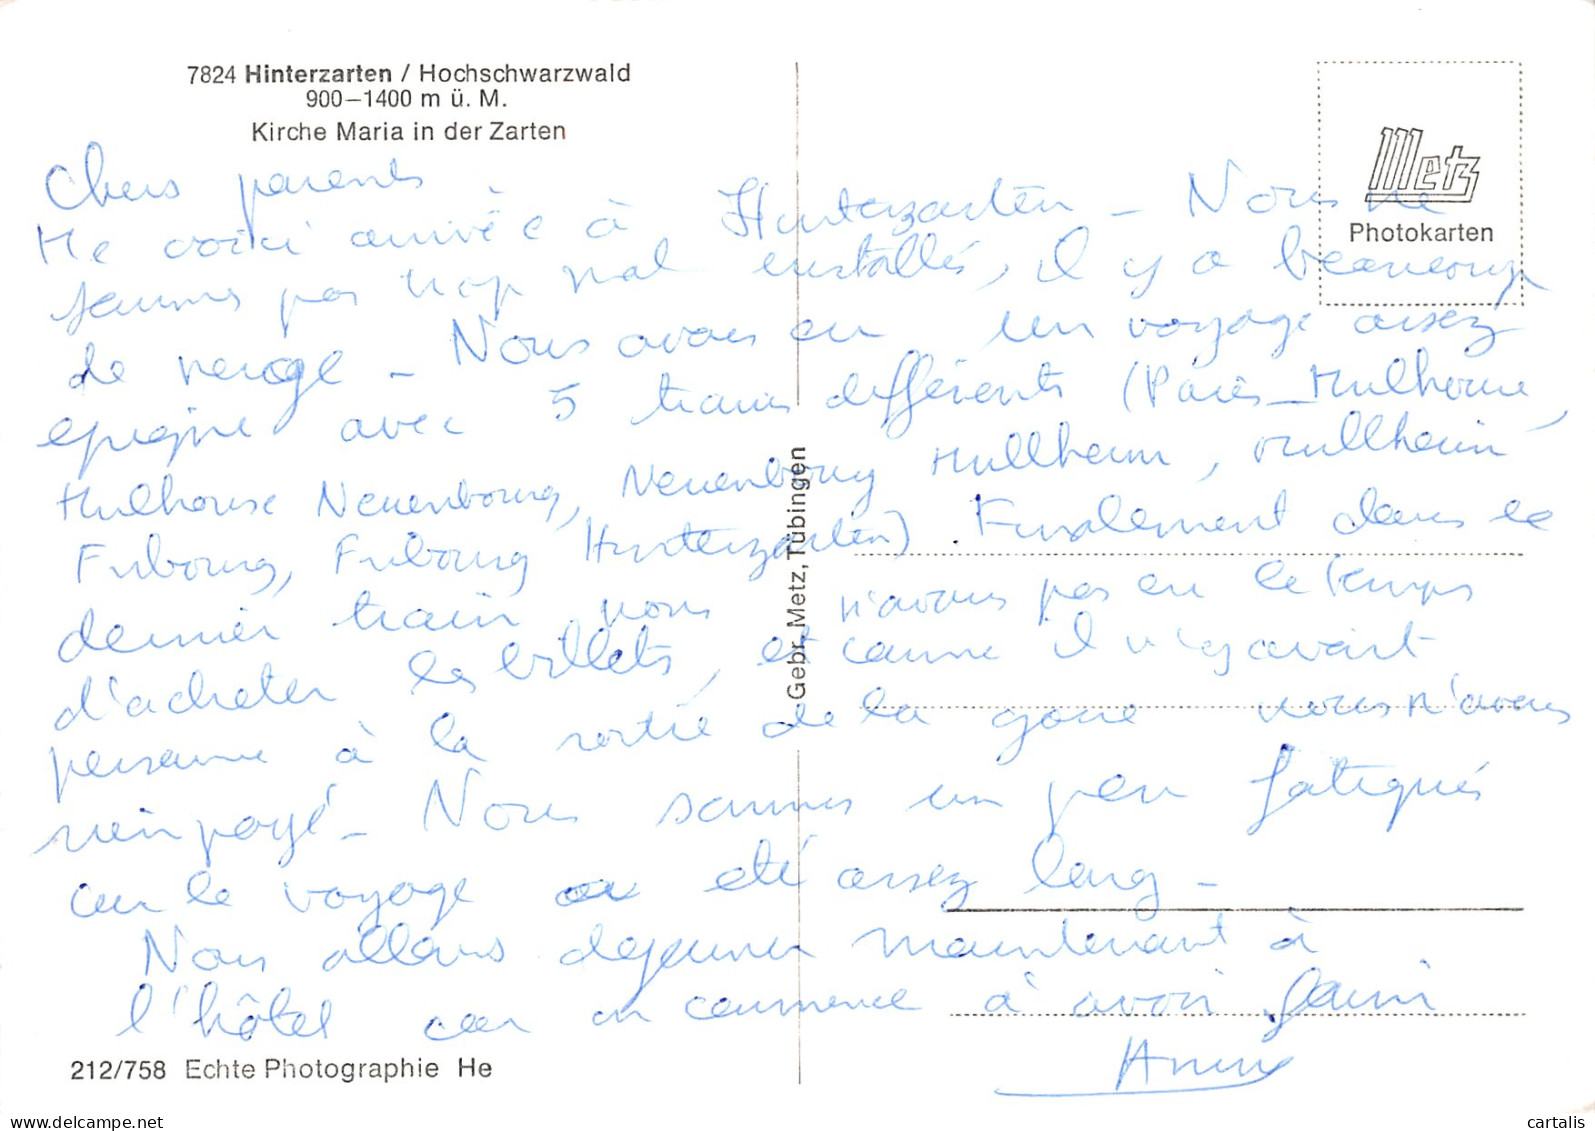 7824 Hinterzarten / Hochschwarzwald
900–1400 m ü. M.
Kirche Maria in der Zarten
Metz
Photokarten
Chers parents
Me voici arrivée à Hinterzarten – Nous ne
sommes pas trop mal installés, il y a beaucoup
de neige – Nous avons eu un voyage assez
épique avec 5 trains différents (Paris_Mulhouse,
Mulhouse Neuenbourg, Neuenbourg Mullheim, Mullheim
Fribourg, Fribourg Hinterzarten). Finalement dans le
dernier train nous n'avons pas eu le temps
d'acheter les billets, et comme il n'y avait
personne à la sortie de la gare nous n'avons
rien payé – Nous sommes un peu fatigués
car le voyage a été assez long –
Nous allons déjeuner maintenant à
l'hôtel car on commence à avoir faim
Gebr. Metz, Tübingen
212/758 Echte Photographie He
www.delcampe.net
cartalis